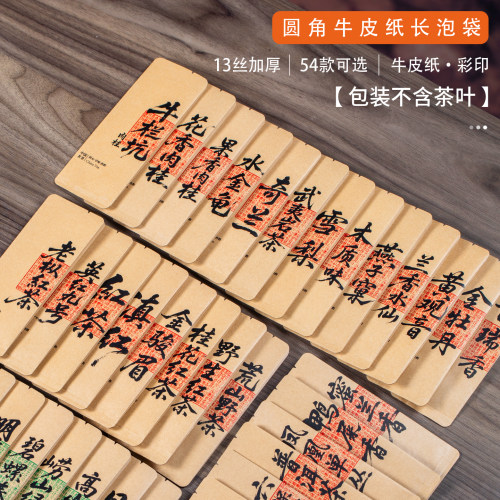 圆角牛皮纸长泡袋
13丝加厚 | 54款可选 | 牛皮纸·彩印
【包装不含茶叶】
牛栏坑
肉桂
花香肉桂
果香肉桂
水金龟
奇兰
武夷岩茶
雪梨
木质味
燕子窠
兰香水仙
黄观音
金牡丹
瑞香
老枞红茶
英红九号
红茶
滇红
金骏眉
桂花红茶
野生红茶
荒山野茶
蜜兰香
鸭屎香
凤凰单丛
普洱茶
明
碧螺
崂山
高